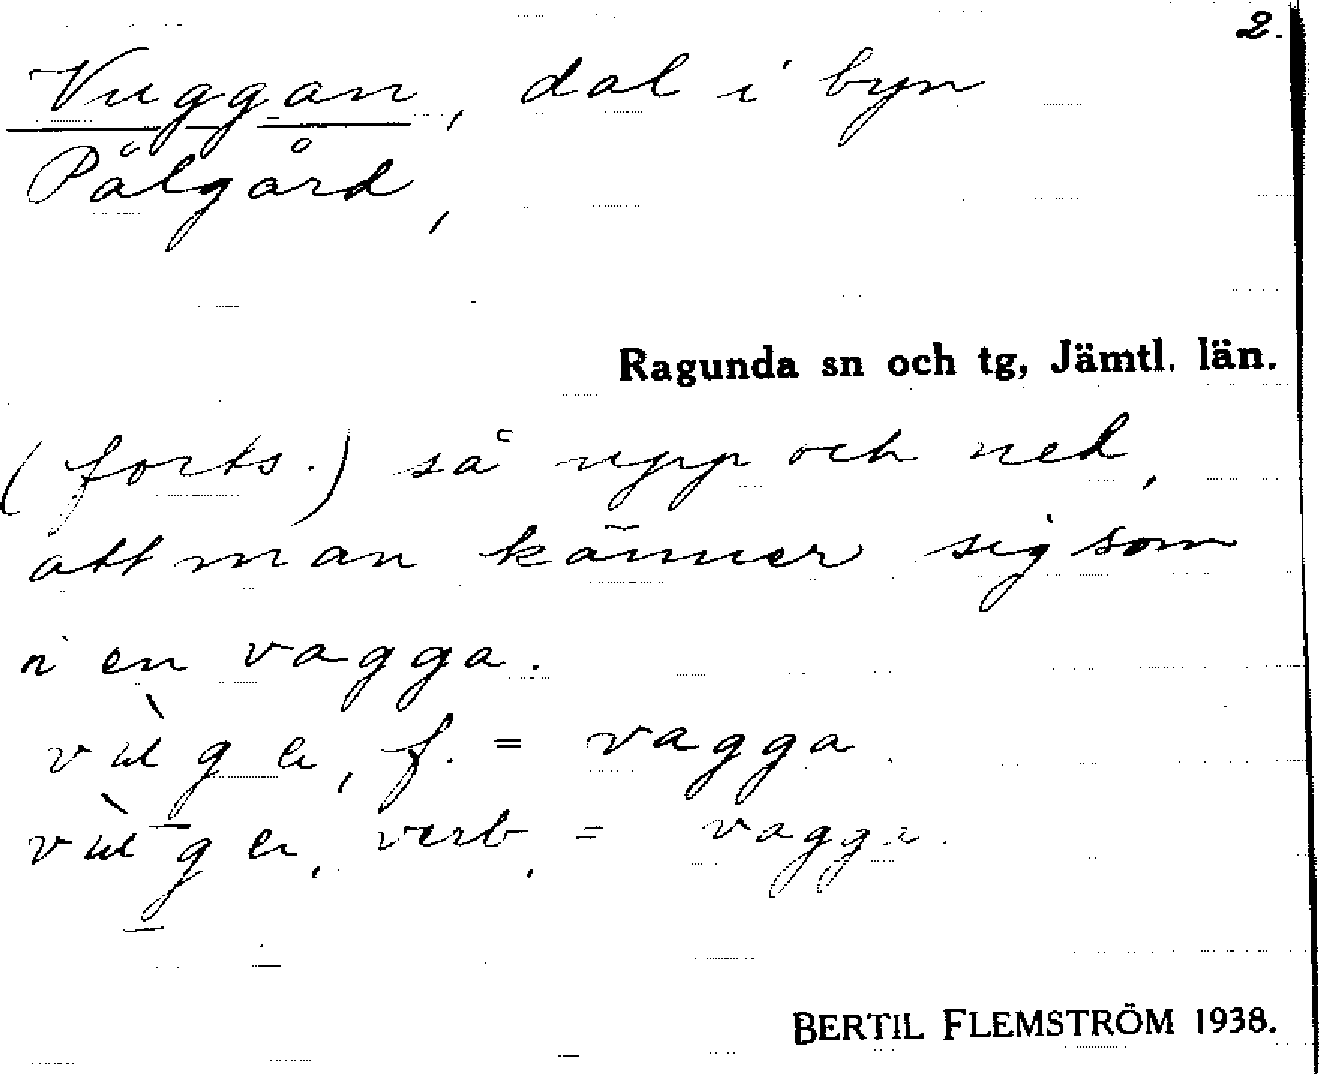 2.
Vuggan, dal i byn
Pålgård,
Ragunda sn och tg, Jämtl. län.
(forts.) så upp och ned,
att man känner sig som
i en vagga.
f. = vagga
verb, = vagga.
BERTIL FLEMSTRÖM 1938.